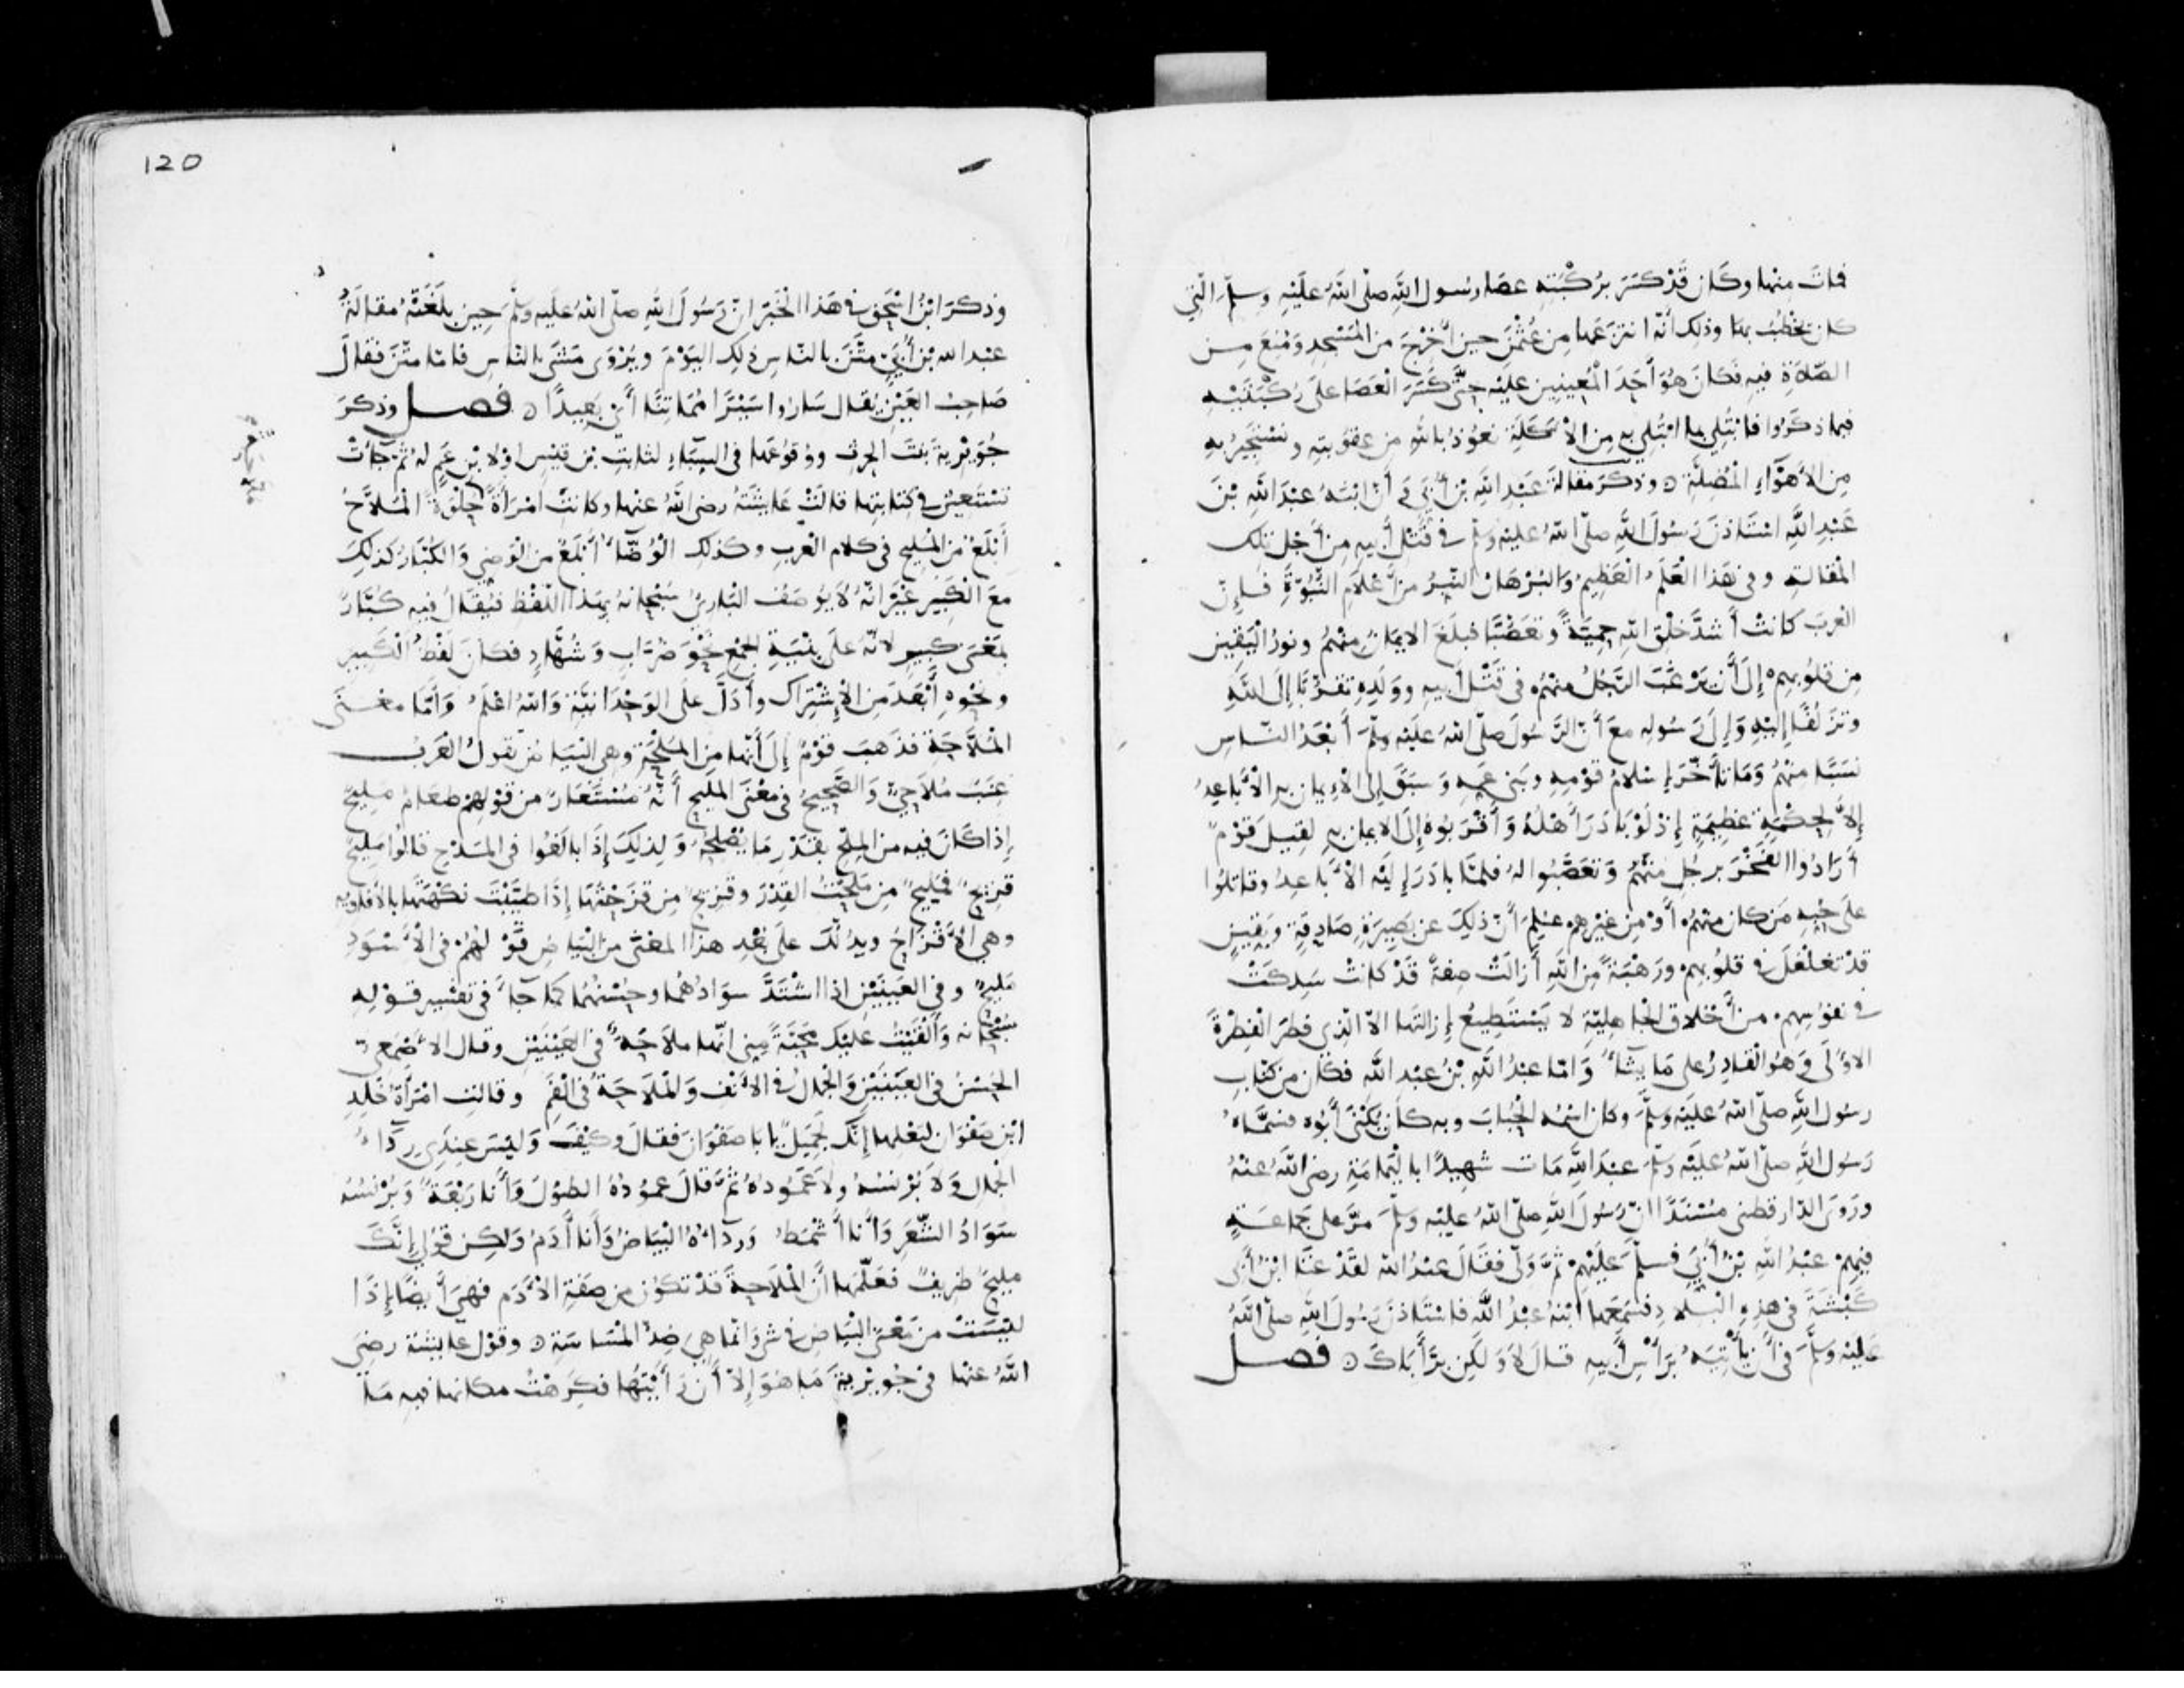 فمات منها وكان قد كسَرَ برُكْبَتِه عصا رسول اللهِ صلّى اللهُ علَيْهِ وسلّم الّتي
كان يخطُبُ بها وذلك أنّه انتزعَها مِن عُثْمٰنَ حين أُخْرِجَ من المَسْجِدِ وَمُنِعَ مِن
الصَّلاَةِ فيه فكَانَ هُوَ أَحَدَ المُعِينين علَيْه حتَّى كَسَرَ الْعَصَا علَى رُكْبَتَيْهِ
فيما ذكَرُوا فابْتُلِيَ بما ابْتُلِي به مِن الأَكَلَةِ نعُوذُ باللهِ من عقُوبتِهِ ونَسْتَجيرُ بهِ
مِن الأَهْوَآءِ الْمُضِلَّةِ ٥ وذكَرَ مقالةَ عَبْدِ اللهِ بْنِ أُبَيٍّ وَأَنّ ابْنَهُ عبْدَ اللهِ بْنَ
عَبْدِ اللهِ اسْتَأذنَ رَسُولَ اللهِ صلّى اللهُ علَيْهِ وسلّم في قَتْلِ أَبيهِ مِن أَجْل تلك
المقالةِ وفي هَذا الْعَلَمُ الْعَظِيمُ وَالبُرْهَانُ النّيِّرُ مِن أَعْلَامِ النُّبُوّةِ فَإِنّ
العَربَ كانتْ أشدَّ خلْقِ اللهِ حمِيَّةً وتعَصُّبًا فبلَغَ الايمَانُ منهُمْ ونورُ الْيَقينِ
مِن قلُوبِهم إلَى أَن يَرْغَبَ الرَّجُلُ منهُم في قَتْل أَبيهِ ووَلَدِهِ تقرُّبًا إلَى اللهِ
وتزَلُّفًا إلَيْهِ وَإِلَى رَسُولهِ معَ أَنّ الرَّسُولَ صلّى اللهُ علَيْه وسلّمَ أَبْعَدُ النّاسِ
نَسَبًا منْهُمْ وَمَا تأَخَّرَ إسْلامُ قوْمِهِ وبَني عَمِّهِ وَسَبَقَ إلى الإيمان به الأَبَاعِدُ
إلاَّ لِحِكْمَةٍ عَظِيمَةٍ إذْ لَوْ بَادَرَ أَهْلُهُ وَأَقْرَبُوهُ إلَى الايمان به لقِيلَ قَوْمٌ
أَرَادُوا الفَخْرَ برجُلٍ منْهُمْ وَتعَصَّبُوا لهُ فلَمّا بادَرَ إِلَيْه الأَبَاعِدُ وقاتلُوا
علَى حُبِّهِ مَن كان منهُمْ أَوْ مِن غَيْرِهِم عُلِمَ أَنّ ذلِكَ عن بَصِيرَةٍ صَادِقةٍ ويَقِينٍ
قدْ تغلْغلَ في قلُوبِهمْ ورَهْبَةً مِن اللهِ أَزالَتْ صِفةً قَدْ كانتْ سَدِكَتْ
في نفوسِهم من أَخلاق الجاهِليّةِ لا يَسْتَطِيعُ إزالتَها إلاّ الّذي فطَرَ الفِطْرةَ
الاوُلَى وَهُو القَادِرُ على مَا يشَآءُ وَامّا عبْدُ اللهِ بْنُ عبْدِ اللهِ فكَان من كتّابِ
رسُول اللهِ صلّى اللهُ علَيْه وسلَّمَ وكان اسْمُه الحُبابَ وبه كان يُكْنَى أَبُوه فسَمَّاهُ
رَسُول اللهِ صلّى اللهُ علَيْه وسلّمَ عبْدَ اللهِ مَات شهِيدًا باليَمامَةِ رضي اللهُ عنْهُ
ورَوَى الدّارقطني مُسْنَدًا انّ رَسُولَ اللهِ صلّى اللهُ علَيْه وسلّمَ مَرَّ على جَماعَةٍ
فيهِمْ عبْدُ اللهِ بْنُ أُبَيٍّ فسلّمَ علَيْهِمْ ثمّ وَلّى فقَالَ عبْدُ الله لقَدْ عَثَا ابْنُ أَبي
كَبْشَةَ في هذِهِ الْبِلاَدِ فسَمِعَها ابْنهُ عبْدُ اللهِ فاسْتَاذنَ رَسُولَ اللهِ صلّى اللهُ
علَيْهِ وسلَّمَ في أَن يَأْتِيَهُ بِرَأْسِ أَبِيهِ قَالَ لاَ وَلَكِن بِرَّ أَبَاكَ ٥ فصل
وذكرَ ابْنُ اسْحٰق في هَذا الْخَبَرِ انّ رَسُولَ اللهِ صلّى اللهُ علَيْه وسلّم حِين بلَغَتْهُ مَقَالَةُ
عبْد الله بْنِ أُبَيٍّ مَتَّنَ بالنّاسِ ذلِك اليَوْمَ ويُرْوَى مَشَى بالنّاسِ فامّا مَتَّنَ فقَالَ
صَاحِبُ العَيْنِ يُقال سَارُوا سَيْرًا مُمَاتِنًا أَي بَعِيدًا ٥ فصل وذكَرَ
جُوَيْرِيةَ بنْتَ الحٰرث ووُقُوعَها في السِّبَآءِ لثابت بْن قيْسٍ أوْ لابْنِ عَمٍّ لهُ ثمّ جآءَتْ
تسْتَعِينُ في كتابتِها قالَتْ عَائشَةُ رضي اللهُ عنها وكانتْ امْرَأَةً حُلْوَةً المُلاَّحُ
أَبْلَغُ مِن المَليح في كلام العَربِ وكذلك الْوُضَّآءُ أَبْلَغُ من الوَضِي وَالكُبَّارُ كذلِكَ
مع الكَبِير غَيْرَ انّهُ لاَ يُوصَفُ البَارئُ سُبْحَانهُ بهَذا اللّفْظِ فيُقَالُ فيه كُبَّارٌ
بمَعْنَى كبيرٍ لانّهُ علَى بِنْيَةِ الجمْعِ نحْوَ ضُرَّابٍ وَشُهَّادٍ فكَانَ لَفْظُ الْكَبِيرِ
ونحْوِهِ أَبْعَدَ مِن الاشْتِرَاك وأَدَلَّ علَى الوَحْدَانيَّةِ وَاللهُ اعْلَمُ وَأَمّا معْنَى
المُلَّاحَةِ فذهَبَ قوْمٌ إلَى أَنّها مِن المُلْحَةِ وهِي البَيَاضُ تقولُ العَربُ
عِنَبٌ مُلاَحِيٌّ وَالصَّحِيحُ في مَعْنَى المَليحِ أَنّهُ مُسْتَعَارٌ من قوْلِهِمْ طعَامٌ مَليحٌ
إذا كَانَ فيه من المِلْحِ بقَدْرِ مَا يُصْلِحُهُ وَلِذلِكَ إذَا بالَغُوا في المَدْحِ قالُوا مَلِيحٌ
قزِيحٌ فمَلِيحٌ مِن مَلَحْتُ القِدْرَ وقَزيحٌ مِن قزَحْتُهَا إذَا طيّبْتَ نكْهَتَها بالأَفاوِيهِ
وهي الأَقْزَاحُ ويدُلّكَ علَى بُعْدِ هذا المعْنَى مِن البَيَاضِ قَوْلُهُمْ في الأَسْوَدِ
مَليحٌ وفي العَيْنَيْنِ إذا اشْتَدَّ سوَادُهُما وحُسْنُهُما كما جَآءَ في تفسير قوْلِهِ
سُبْحَانه وَأَلْقَيْتُ علَيْك مَحَبَّةً مِنّي انّها مَلاَحَةٌ في العَيْنَيْنِ وقال الأَصْمَعِيّ
الحُسْنُ في العَيْنَيْنِ وَالْجمَالُ في الأَنْفِ وَالْمَلاَحَةُ في الْفَمِ وقالَت امْرَأَةُ خٰلِدِ
ابْنِ صَفْوَان لبَعْلِها إنّكَ لَجَمِيلٌ يابا صَفْوَانَ فقَالَ وكَيْفَ وَلَيْسَ عِنْدِي رِدَآءُ
الجَمال وَلاَ بُرْنُسُهُ ولاَ عَمُودُهُ ثمّ قَالَ عمُودُهُ الطُّولُ وَأَنا رَبْعَةٌ وَبُرْنُسُهُ
سَوَادُ الشَّعَرِ وَأَنا أَشْمَطُ وَرِدَآؤُهُ البَيَاضُ وَأَنا أٰدَمُ وَلَكِن قُولِي إنَّكَ
مليحٌ ظريفٌ فعَلَّمَها أَنّ المَلاَحَةَ قَدْ تكُونُ مِن صِفَةِ الأَدَمِ فهِيَ أَيْضًا إذًا
ليْسَتْ من مَعْنَى البَيَاضِ في شيءٍ وانّما هي ضِدُّ المَسَاسَةِ ٥ وقَوْل عائشة رضِيَ
اللهُ عنها في جُويْريةَ مَا هُوَ إلاَّ أَن رَأَيْتُها فكَرِهْتُ مكانَها فيهِ مَا
120